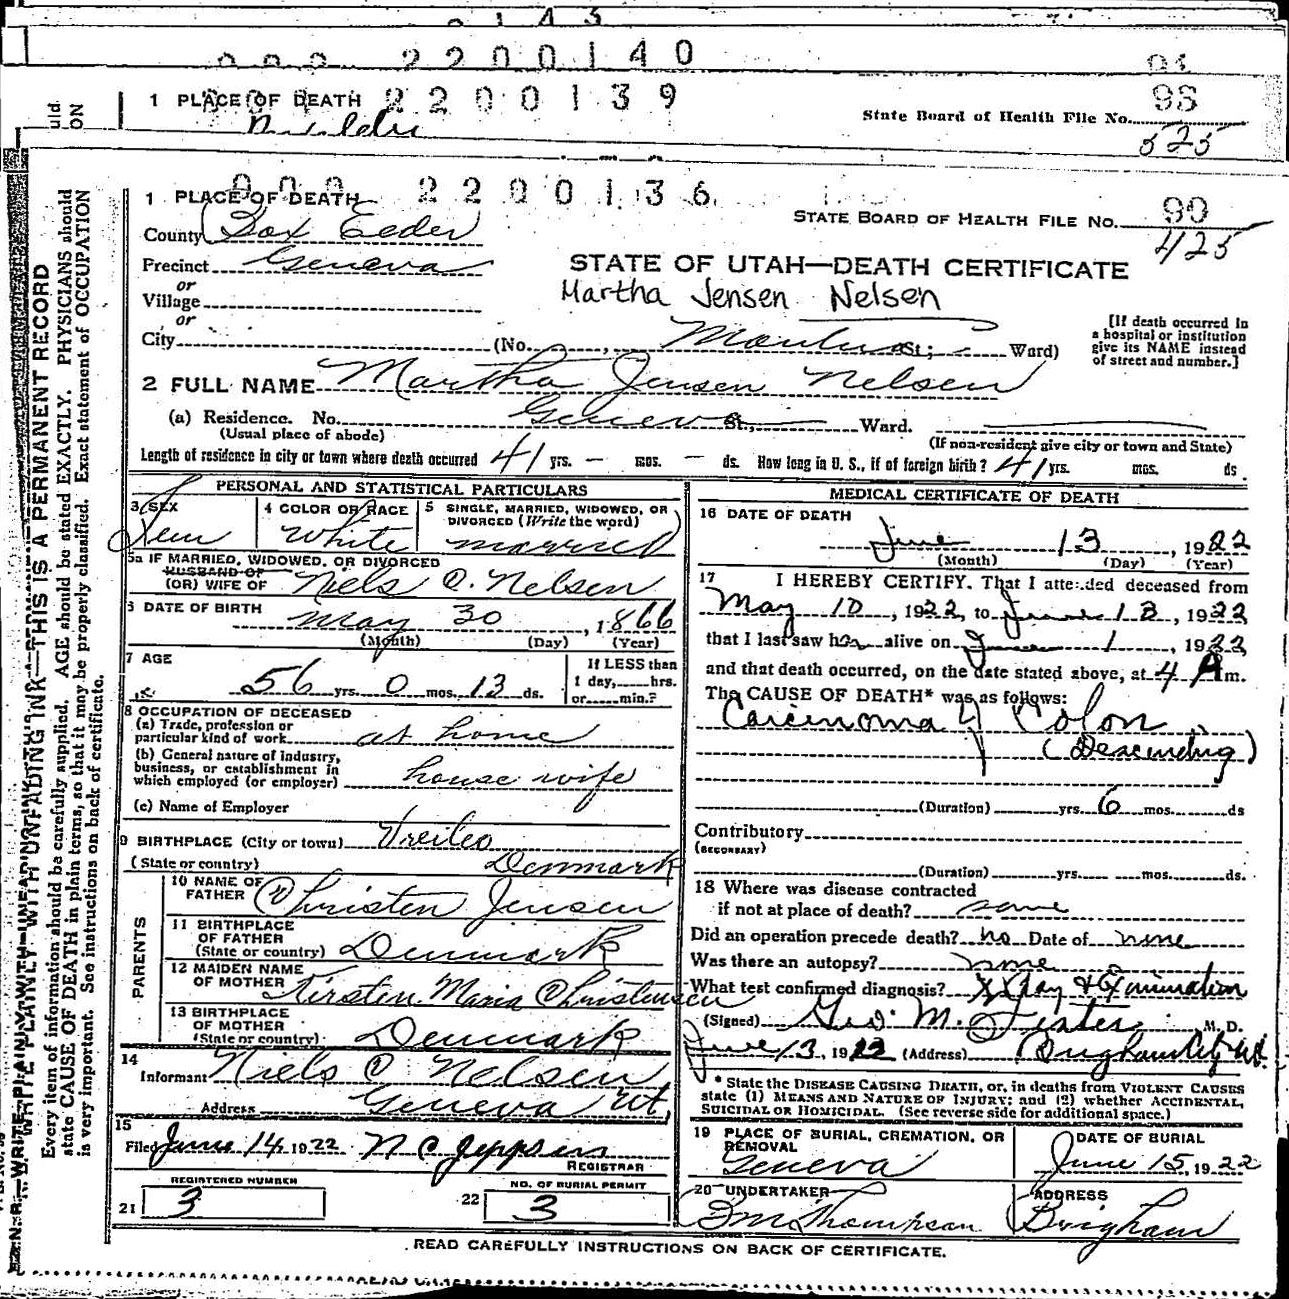 2 1 4 3
0 0 0 2 2 0 0 1 4 0
94
1 PLACE OF DEATH 2 2 0 0 1 3 9
98
State Board of Health File No.
525
uld
ON
0 0 0 2 2 0 0 1 3 6
1 PLACE OF DEATH
STATE BOARD OF HEALTH FILE No. 90
425
County Box Elder
Precinct Geneva
or
Village
or
City
STATE OF UTAH—DEATH CERTIFICATE
Martha Jensen Nelsen
(No. , Mantua St; Ward)
[If death occurred in
a hospital or institution
give its NAME instead
of street and number.]
2 FULL NAME Martha Jensen Nelsen
(a) Residence. No. Geneva St., Ward.
(Usual place of abode)
(If non-resident give city or town and State)
Length of residence in city or town where death occurred 41 yrs. — mos. — ds. How long in U. S., if of foreign birth? 41 yrs. mos. ds
PERSONAL AND STATISTICAL PARTICULARS
3 SEX
Fem
4 COLOR OR RACE
White
5 SINGLE, MARRIED, WIDOWED, OR
DIVORCED (Write the word)
married
5a IF MARRIED, WIDOWED, OR DIVORCED
HUSBAND OF
(OR) WIFE OF Niels C. Nelsen
6 DATE OF BIRTH
May 30, 1866
(Month) (Day) (Year)
7 AGE
56 yrs. 0 mos. 13 ds.
If LESS than
1 day, hrs.
or min.?
8 OCCUPATION OF DECEASED
(a) Trade, profession or
particular kind of work at home
(b) General nature of industry,
business, or establishment in
which employed (or employer) house wife
(c) Name of Employer
9 BIRTHPLACE (City or town)
(State or country) Denmark
PARENTS
10 NAME OF
FATHER Christen Jensen
11 BIRTHPLACE
OF FATHER
(State or country) Denmark
12 MAIDEN NAME
OF MOTHER Kirsten Maria Christensen
13 BIRTHPLACE
OF MOTHER
(State or country) Denmark
14
Informant Niels C Nelsen
Address Geneva Ut,
15
Filed June 14 1922 N C Jeppsen
REGISTRAR
REGISTERED NUMBER
21 3
NO. OF BURIAL PERMIT
22 3
MEDICAL CERTIFICATE OF DEATH
16 DATE OF DEATH
June 13, 1922
(Month) (Day) (Year)
17 I HEREBY CERTIFY. That I attended deceased from
May 10, 1922, to June 13, 1922
that I last saw her alive on June 1, 1922
and that death occurred, on the date stated above, at 4 A m.
The CAUSE OF DEATH* was as follows:
Carcinoma of Colon
(Descending)
(Duration) yrs. 6 mos. ds
Contributory
(SECONDARY)
(Duration) yrs. mos. ds.
18 Where was disease contracted
if not at place of death? same
Did an operation precede death? no Date of none
Was there an autopsy? none
What test confirmed diagnosis? X Ray & Examination
(Signed) Geo. M. Fister M. D.
June 13, 1922 (Address) Brigham City Ut.
* State the DISEASE CAUSING DEATH, or, in deaths from VIOLENT CAUSES
state (1) MEANS AND NATURE OF INJURY; and (2) whether ACCIDENTAL,
SUICIDAL OR HOMICIDAL. (See reverse side for additional space.)
19 PLACE OF BURIAL, CREMATION, OR
REMOVAL
Geneva
DATE OF BURIAL
June 15, 1922
20 UNDERTAKER
Thompson
ADDRESS
Brigham
READ CAREFULLY INSTRUCTIONS ON BACK OF CERTIFICATE.
WRITE PLAINLY WITH UNFADING INK—THIS IS A PERMANENT RECORD
Every item of information should be carefully supplied. AGE should be stated EXACTLY. PHYSICIANS should
state CAUSE OF DEATH in plain terms, so that it may be properly classified. Exact statement of OCCUPATION
is very important. See instructions on back of certificate.